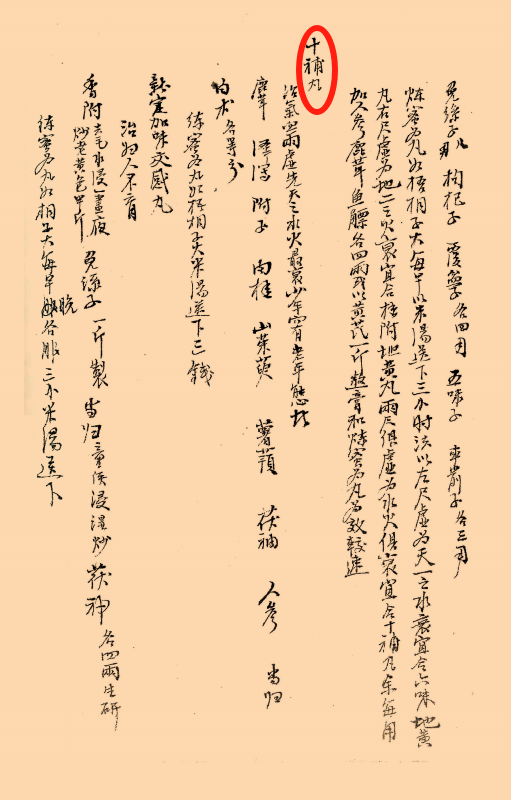 兔絲子 枸杞子 覆盆子各四両 五味子 車前子各三両
煉蜜為丸如梧桐子大每早以米湯送下三分 時法以左尺虛為天一之水衰宜合六味地黃
丸右尺虛為地二之火衰宜合桂附地黃丸兩尺俱虛為水火俱衰宜合十補丸 每用
加人參鹿茸魚鰾各四兩 以黃芪一斤 膏和煉蜜為丸為效較速
十補丸
治氣血兩虛先天之水火最衰少年而有老年態者
鹿茸 澤瀉 附子 肉桂 山茱萸 薯蕷 茯神 人參 當归
白朮各等分
煉蜜為丸如梧桐子大米湯送下三錢
新定加味交感丸
治婦人不育
香附去毛水浸一晝夜炒老黃色半斤 兔絲子一斤製 當归童便浸湿炒 茯神各四兩生研
煉蜜為丸如桐子大每早晚各服三分米湯送下